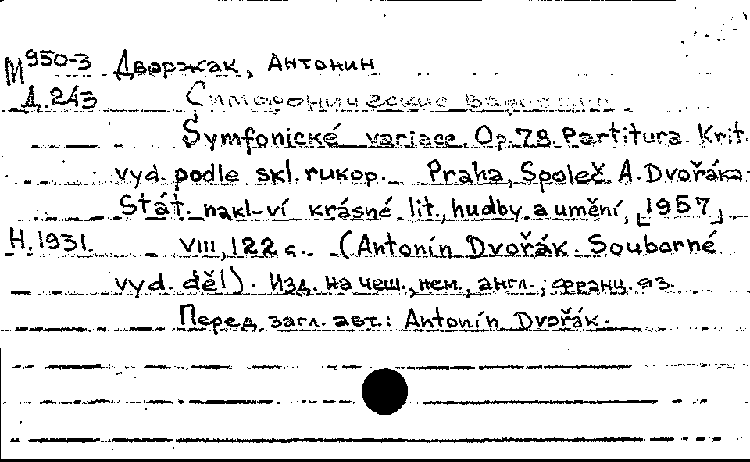 М 950-3 Дворжак, Антонин
Д.243 Симфонические вариации
Symfonické variace. Op.78. Partitura. Krit.
vyd. podle skl. rukop. Praha, Společ. A. Dvořáka.
Stát. nakl-ví krásné lit., hudby a umění, [1957]
Н.1931. VIII, 122 с. (Antonín Dvořák. Soubarné
vyd. děl). Изд. на чеш., нем., англ., франц. яз.
Перед загл. авт.: Antonín Dvořák.